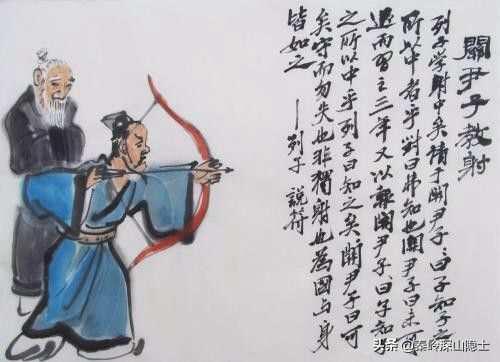 關尹子教射
列子学射中矣請于關尹子曰子知子之
所以中者乎對曰弗知也關尹子曰未可
退而習之三年又以報關尹子曰子知
之所以中乎列子曰知之矣關尹子曰可
矣守而勿失也非獨射也為國与身
皆如之 ——列子 說符
头条 @秦岭深山隐士